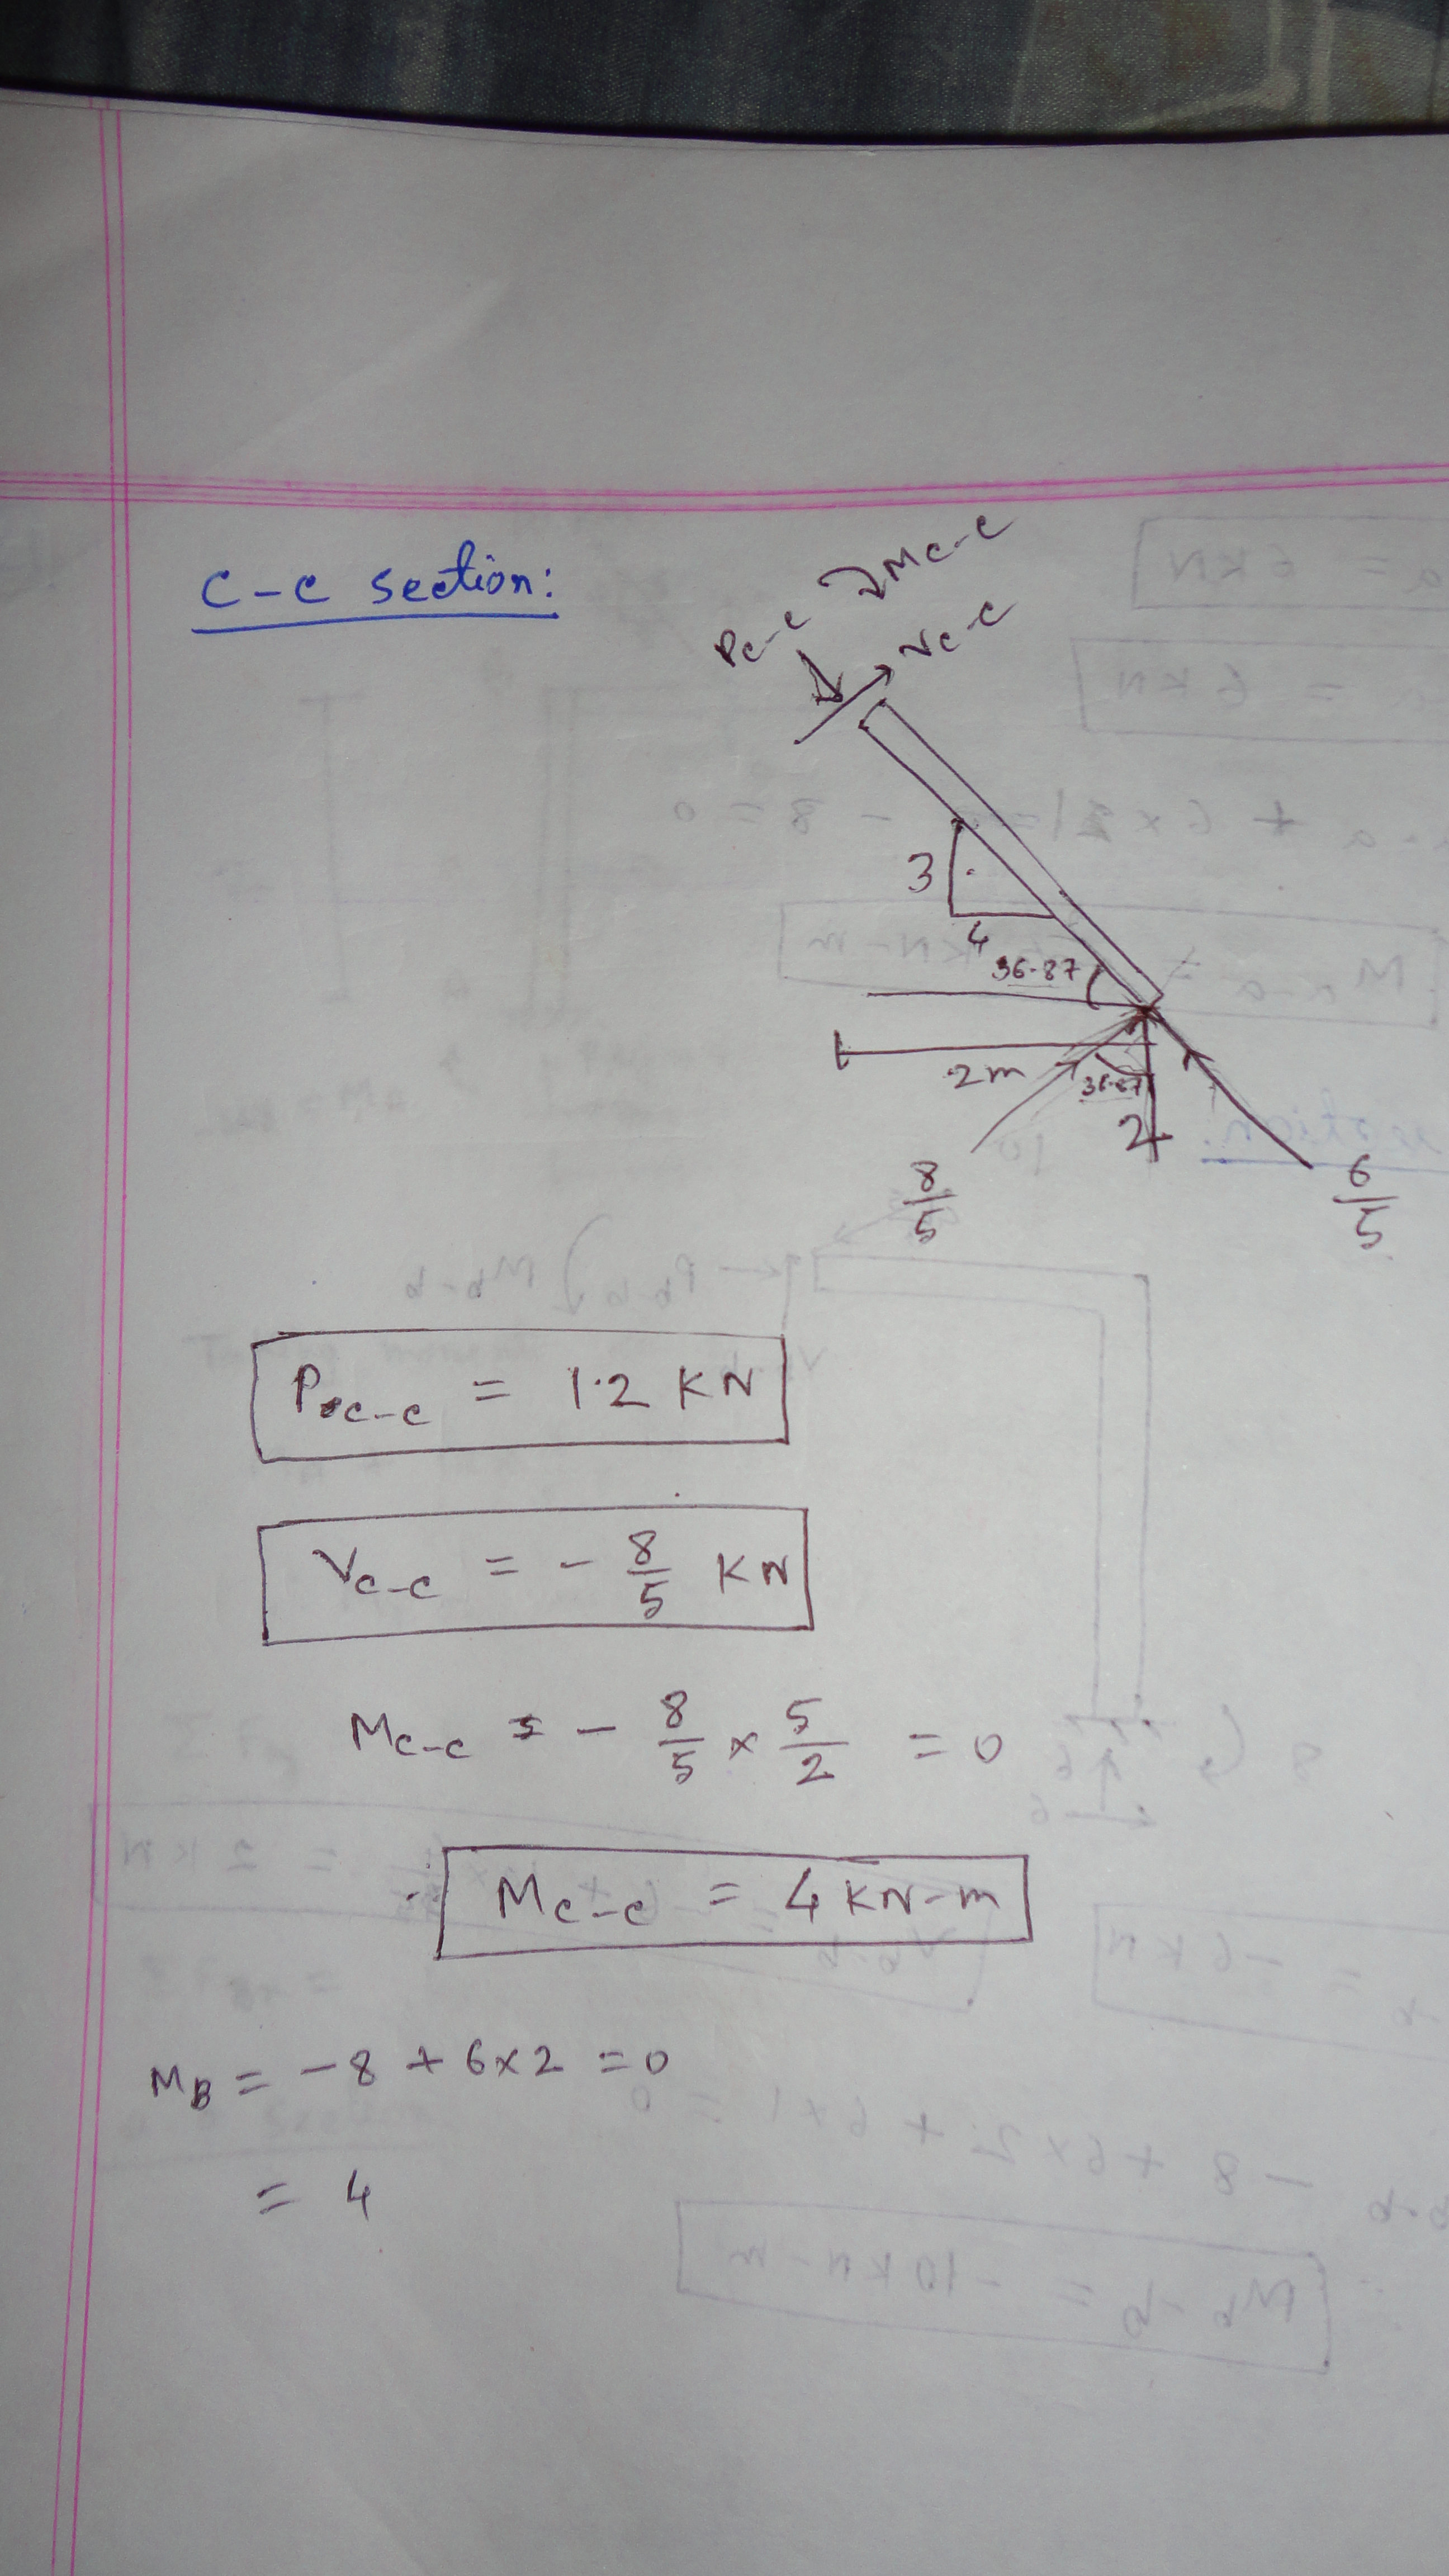 C-C section:
MC-C
PC-C
VC-C
3
4
36.87
2m
36.87
2
8/5
6/5
PC-C = 1.2 KN
VC-C = - 8/5 KN
MC-C = - 8/5 x 5/2 = 0
MC-C = 4 KN-m
MB = -8 + 6x2 = 0
= 4